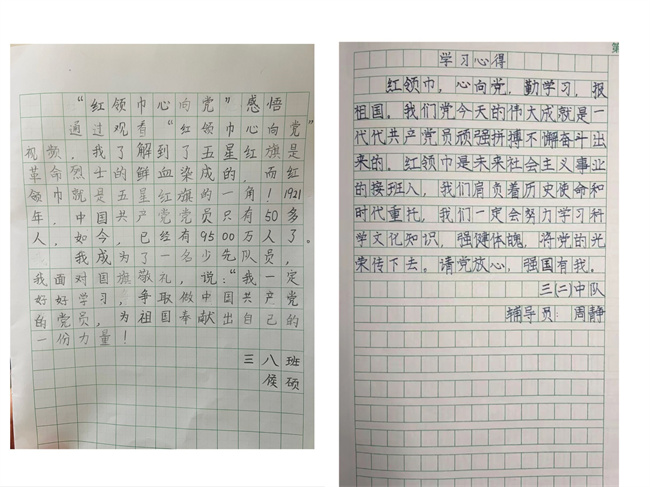 “红领巾心向党”感悟
通过观看“红领巾心向党”
视频,我了解到了五星红旗是
革命烈士的鲜血染成的,而红
领巾就是五星红旗的一角!1921
年,中国共产党党员只有50多
人,如今,已经有9500万人了。
我成为了一名少先队员,
我面对国旗敬礼,说:“我一定
好好学习,争取做中国共产党
的党员,为祖国奉献出自己的
一份力量!
三八班
侯硕
第
学习心得
红领巾,心向党,勤学习,报
祖国。我们党今天的伟大成就是一
代代共产党员顽强拼搏不懈奋斗出
来的。红领巾是未来社会主义事业
的接班人,我们肩负着历史使命和
时代重托,我们一定会努力学习科
学文化知识,强健体魄,将党的光
荣传下去。请党放心,强国有我。
三(二)中队
辅导员:周静